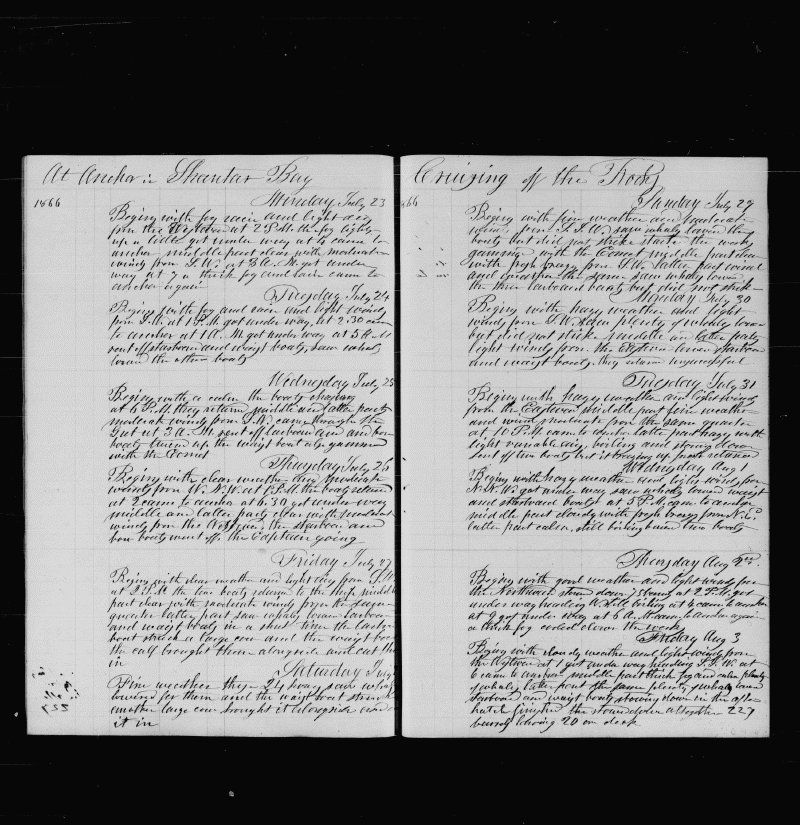 At Anchor in Shantar Bay
1866
Monday July 23
Begins with fog rain and light
from the Westward at 2 P.M. the fog lights
up a little got under way at 4 came to
anchor middle part clear with moderate
winds from S.W. at 3 A.M. got under
way at 7 a thick fog and rain came to
anchor again
Tuesday July 24
Begins with fog and rain and light winds
from S.W. at 1 P.M. got under way at 2.30 came
to anchor at 1 A.M. got under way at 5 A.M.
sent off starboard and waist boats, saw whales
lowered the other boats
Wednesday July 25
Begins with a calm the boats chasing
at 6 P.M. they return middle and latter parts
moderate winds from S.W. came through the
Gut at 3 A.M. sent off larboard and bow
boats lowered up the waist boat also gammed
with the Comet
Thursday July 26
Begins with clear weather and moderate
winds from W.N.W. at 1 P.M. the boats return
at 2 came to anchor at 6.30 got under way
middle and latter parts clear with moderate
winds from the Westward, the starboard and
bow boats went off the Captain going
Friday July 27
Begins with clear weather and light airs from S.W.
at 2 P.M. the two boats return to the ship middle
part clear with moderate winds from the same
quarter latter part saw whales lowered larboard
and waist boats in a short time the larboard
boat struck a large cow and the waist boat
the calf brought them alongside and cut them
in
Saturday July
Fine weather these 24 hours saw whales
lowered for them and the waist boat struck
another large cow brought it alongside and
it in
227
Cruising off the Rocks
66
Sunday July 29
Begins with fine weather and moderate
winds from S.S.W. saw whales lowered the
boats but did not strike starts the works
gamming with the Comet middle part clear
with fresh breeze from S.W. latter part wind
and weather the same saw whales lowered
the three larboard boats but did not strike
Monday July 30
Begins with hazy weather and light
winds from S.W. seen plenty of whales lower
but did not strike middle and latter parts
light winds from the Eastern lower starboard
and waist boats, they return unsuccessful
Tuesday July 31
Begins with hazy weather and light winds
from the Eastward middle part fine weather
and wind moderate from the same quarter
at 10 P.M. came to anchor latter part hazy with
light variable airs boiling and stowing down
sent off two boats but it breezing up fresh returned
Wednesday Aug 1
Begins with hazy weather and light winds from
N.N.W. got under way saw whales lowered waist
and starboard boats at 5 P.M. came to anchor
middle part cloudy with fresh breeze from N.E.
latter part calm, still boiling lowered two boats
Thursday Aug 2nd
Begins with good weather and light winds from
the Northward stow down 75 bbls at 2 P.M. got
under way heading W. still boiling at 4 came to anchor
at 9 got under way at 6 A.M. came to anchor again
a thick fog cooled down the works
Friday Aug 3
Begins with cloudy weather and light winds from
the Westward at 1 got under way heading S.S.W. at
6 came to anchor middle part thick fog and calm plenty
of whales latter part the same plenty of whales lowered
larboard and waist boats stowing down in the after
hatch finished the stowdown altogether 227
barrels leaving 20 on deck